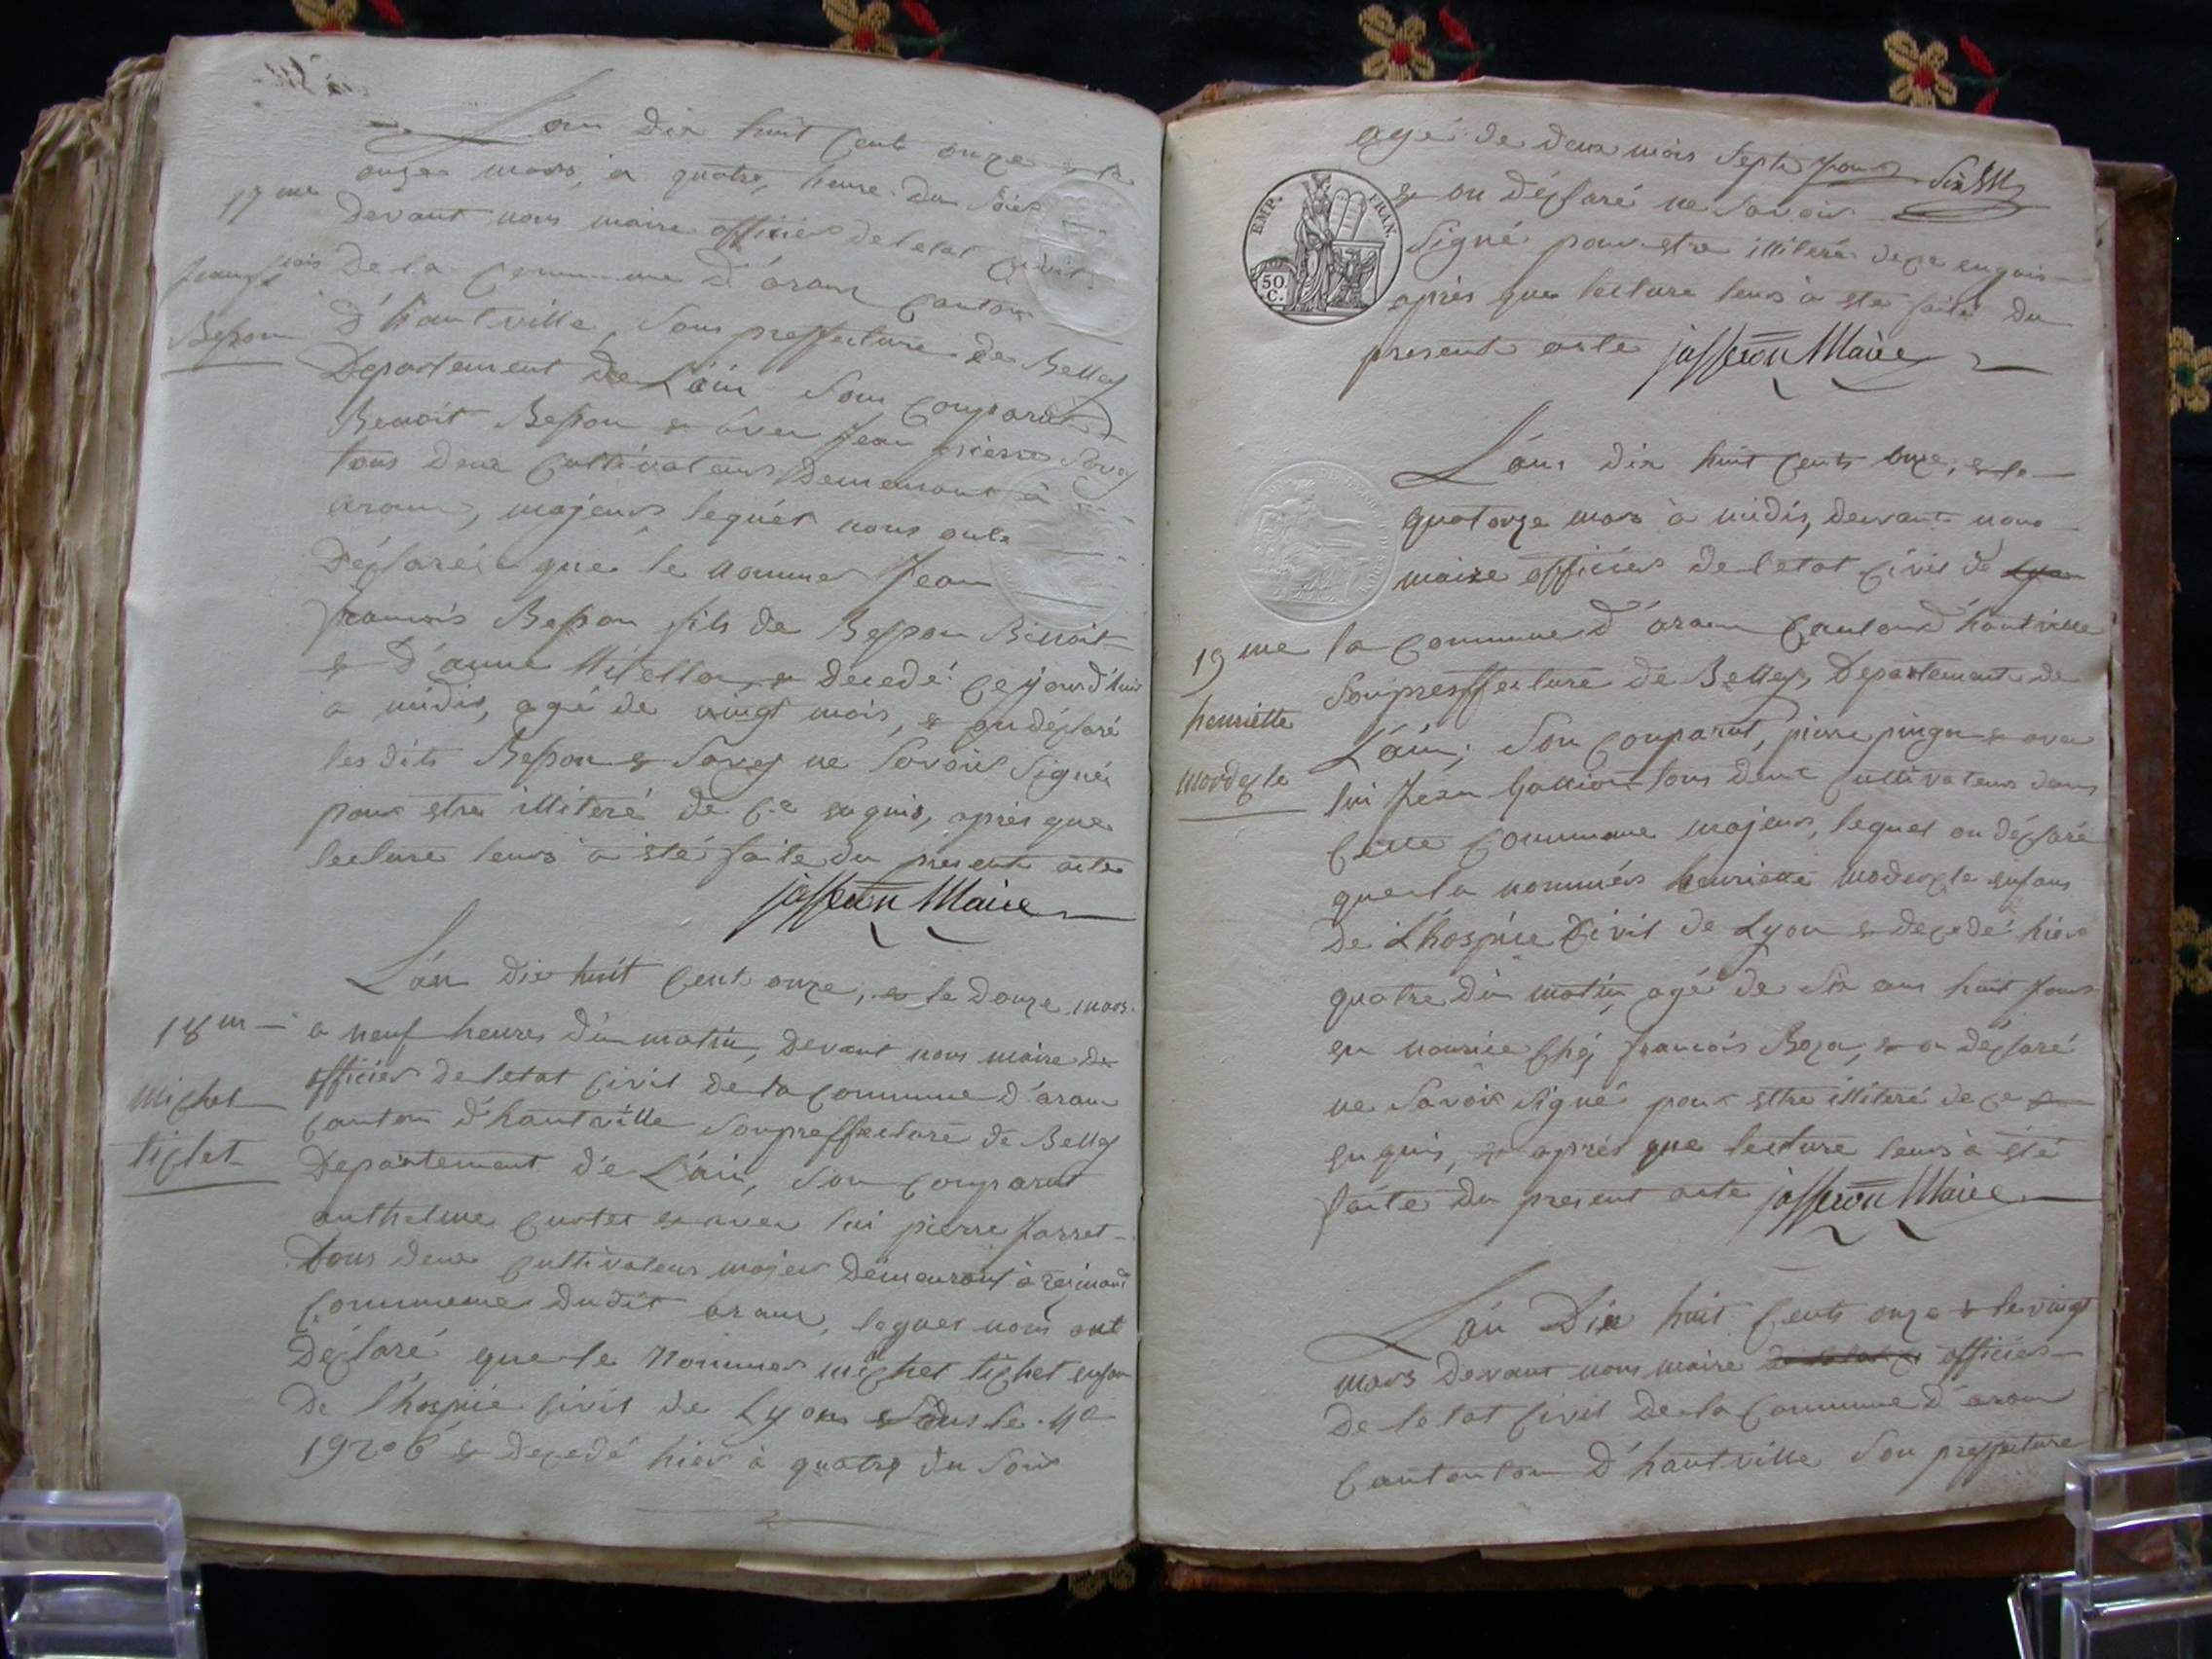 L'an dix huit cent onze & le
onze mars, a quatre, heure du soir
17me
devant nous maire officier de letat civil
jean fcois
de la commune d'aran canton
Besson
d'hautville, sous preffecture de Belley
Departement de L'ain son comparut
Benoit Besson & avec jean pierre Savey
tous deux cultivateurs demeurant à
aran, majeurs lequel nous onts
déclaré que le nommer jean
francois Besson fils de Besson Benoit
& d'anne & decedé cejourd'huis
a midis, agé de vingt mois, & on déclaré
les dits Besson & Savey ne savoir signé
pour estre illiteré de ce enquis, après que
lecture leurs à esté faite du present acte
josseron Maire
L'an dix huit cent onze, & le douze mars
18m
a neuf heures du matin, devant nous maire de
officier de letat civil de la commune d'aran
michel
canton d'hautville souspreffecture de Belley
tichet
Departement de L'ain, son comparut
anthelme & avec lui pierre jarret
tous deux cultivateurs majeur demeurant à resinand
commune dudit aran, lequel nous ont
déclaré que le nommer michel tichet enfan
de l'hospice civil de Lyon sous le no
19206 & decedé hier à quatre du soir
agé de deux mois sept jours
EMP. FRAN.
50 C.
& on déclaré ne savoir
signé pour estre illiteré de ce enquis
après que lecture leurs à esté faite du
present acte josseron Maire
L'an dix huit cents onze, & le
quatorze mars à midis, devant nous
maire officier de letat civil de Lyon
19me
la commune d'aran canton d'hautville
souspreffecture de Belley, Departement de
henriette
L'ain, son comparut, pierre pingon & avec
modeste
lui jean Gallion tous deux cultivateurs dans
cette commune majeur, lequel on déclaré
que la nommés henriette modeste enfans
de L'hospice Civil de Lyon & decedé hier
quatre du matin, agé de six ans huit jours
en nourice ché, francois Boza, & a déclaré
ne savoir signé pour estre illiteré de ce
enquis, & après que lecture leurs à été
faite du present acte josseron Maire
L'an Dix huit cents onze & le vingt
mars devant nous maire officier
de letat civil de la commune d'aran
cantonton d'hautville sou preffecture